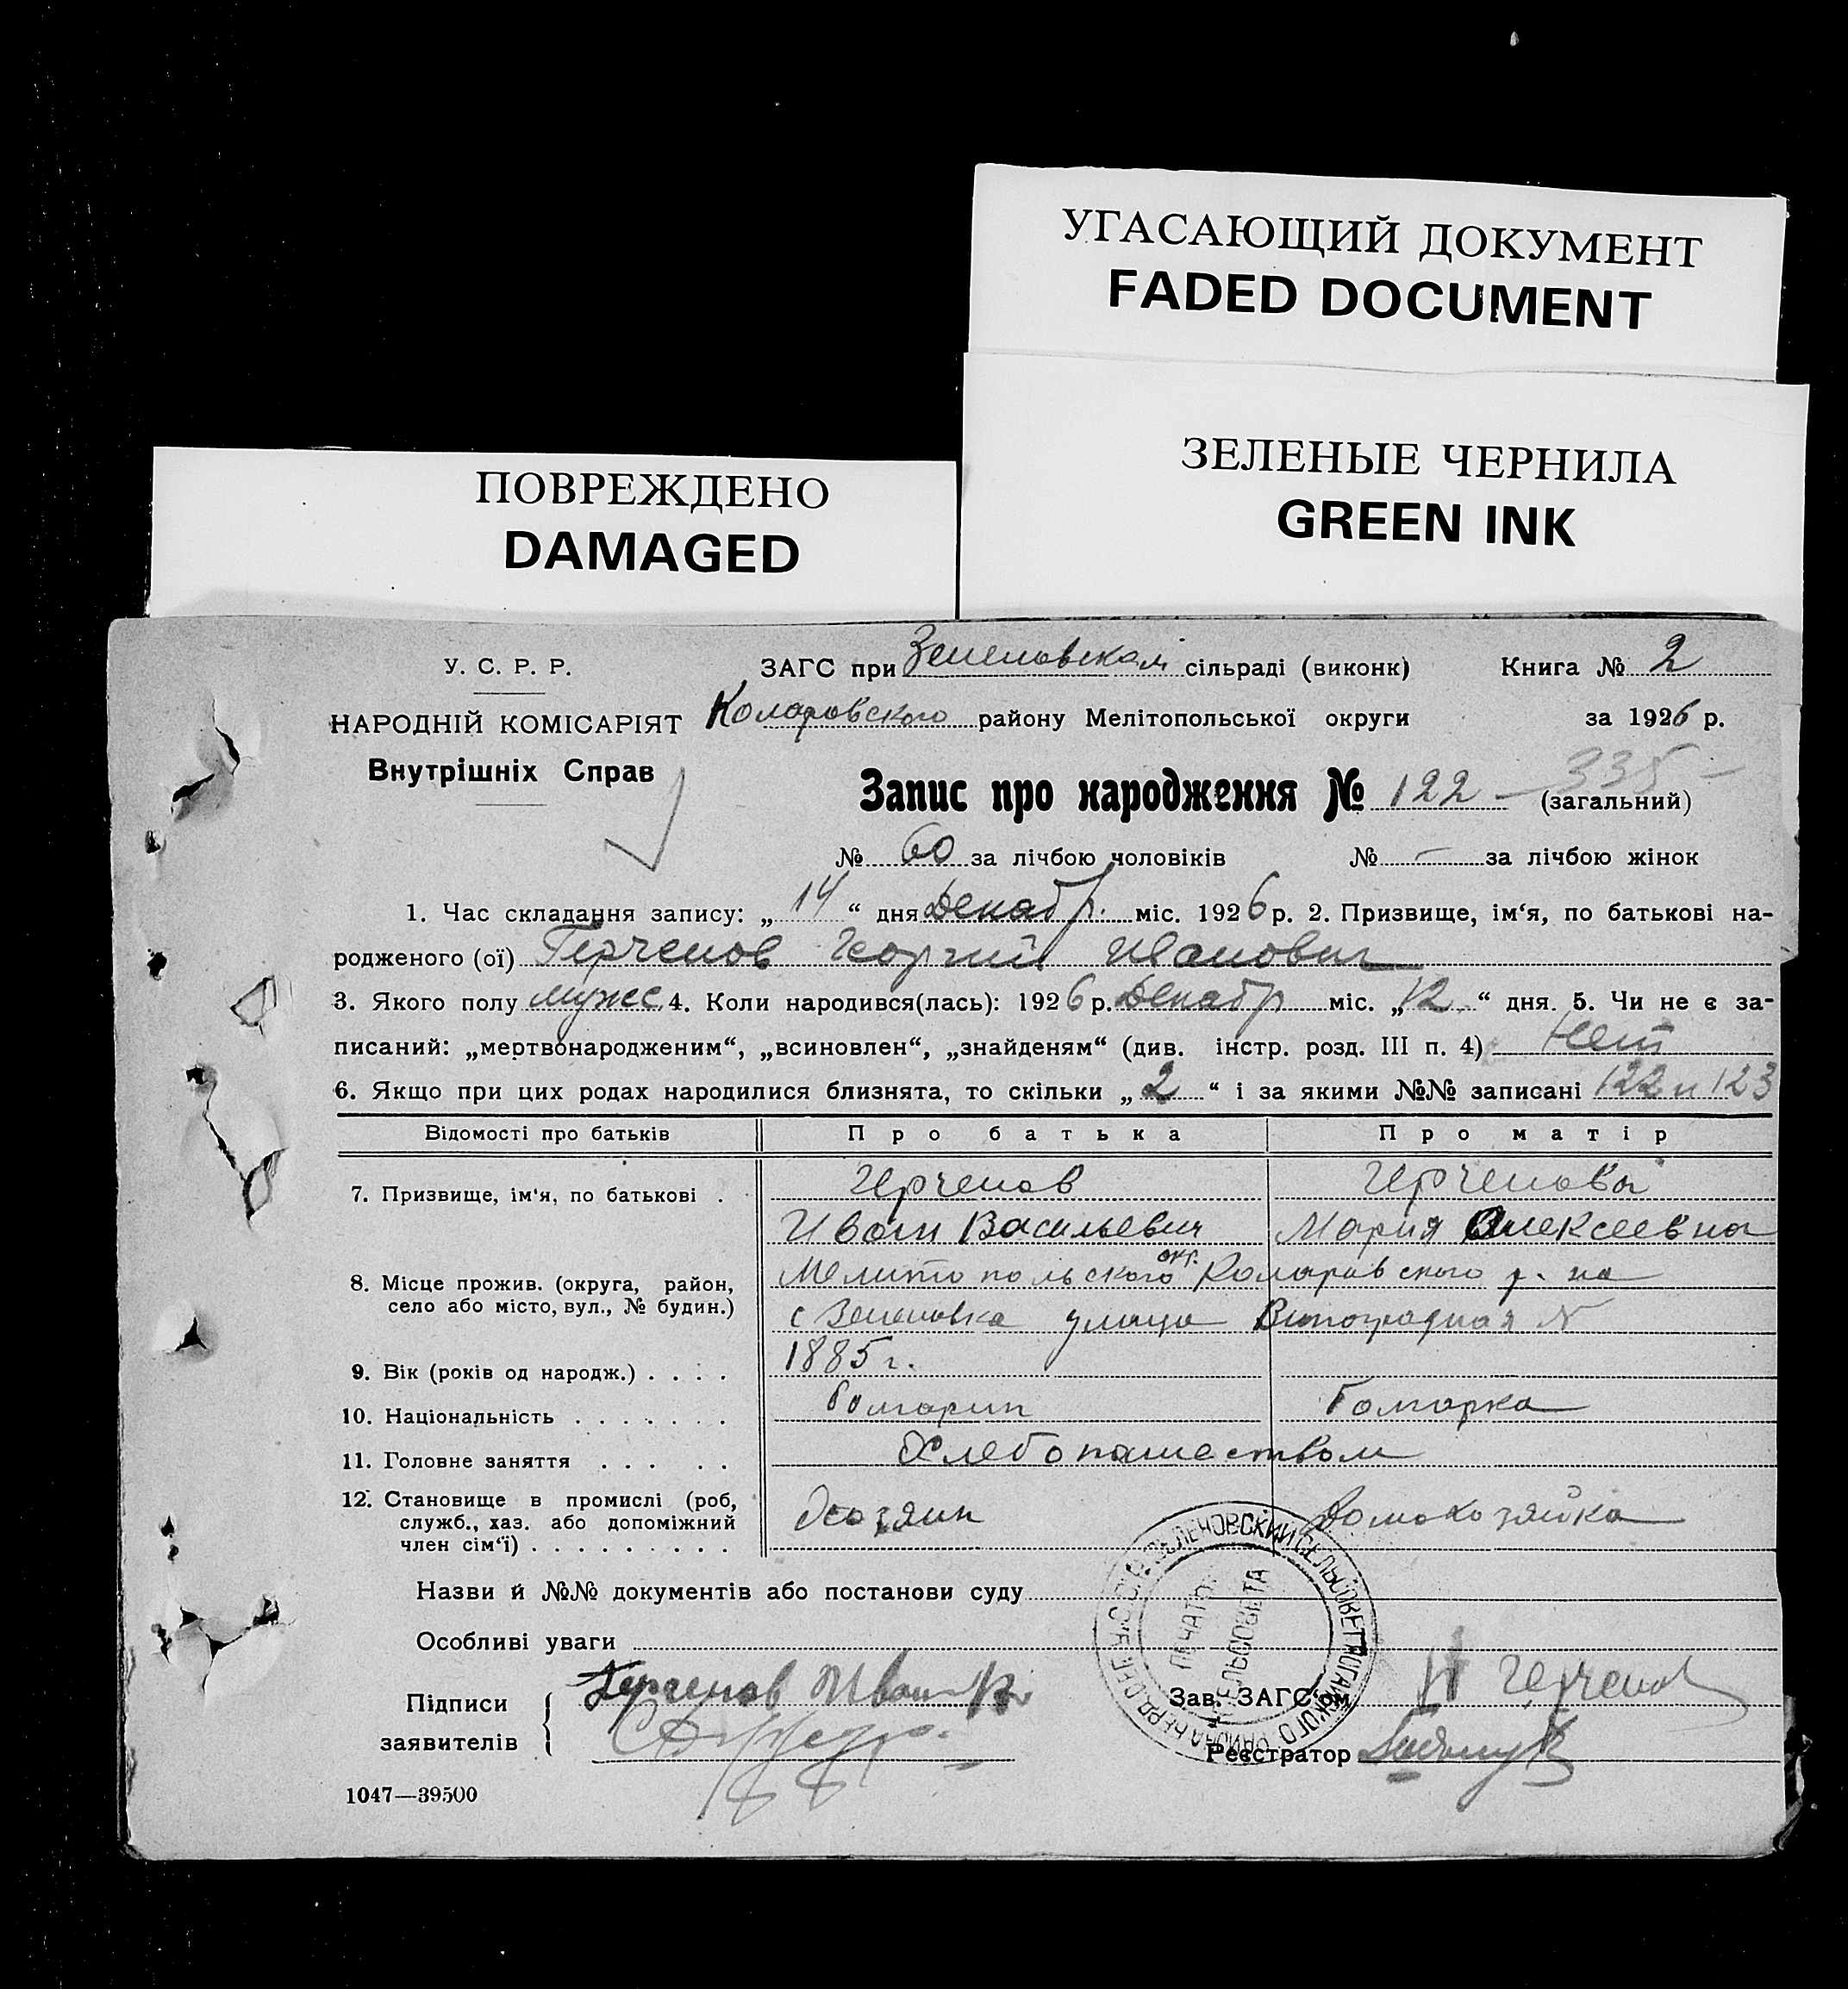 УГАСАЮЩИЙ ДОКУМЕНТ
FADED DOCUMENT
ЗЕЛЕНЫЕ ЧЕРНИЛА
GREEN INK
ПОВРЕЖДЕНО
DAMAGED
У. С. Р. Р.
ЗАГС при Зеленовском сільраді (виконк) Книга № 2
НАРОДНІЙ КОМІСАРІЯТ
Коларовского району Мелітопольської округи за 1926 р.
Внутрішніх Справ
Запис про народження № 122 – 335 – (загальний)
№ 60 за лічбою чоловіків № – за лічбою жінок
1. Час складання запису: „ 14 “ дня Декабр. міс. 1926 р. 2. Призвище, ім‘я, по батькові на-
родженого (ої) Герченов Георгий Иванович
3. Якого полу мужс 4. Коли народився(лась): 1926 р. Декабр міс. „12“ дня. 5. Чи не є за-
писаний: „мертвонародженим“, „всиновлен“, „знайденям“ (див. інстр. розд. III п. 4) Нет
6. Якщо при цих родах народилися близнята, то скільки „ 2 “ і за якими №№ записані 122 и 123
Відомості про батьків Про батька Про матір
7. Призвище, ім'я, по батькові . Герченов Герченова
Иван Васильевич Мария Алексеевна
8. Місце прожив. (округа, район, село або місто, вул., № будин.) Мелитопольского окр. Коларовского р. на
с Зеленовка улица Виноградная №
9. Вік (років од народж.) . . . . 1885 г.
10. Національність . . . . . . . болгарин болгарка
11. Головне заняття . . . . . Хлебопашеством
12. Становище в промислі (роб, служб., хаз. або допоміжний член сім‘ї) . . . . . . . . . Хозяин Домохозяйка
Назви й №№ документів або постанови суду
Особливі уваги
ЗЕЛЕНОВСКИЙ СЕЛЬСОВЕТ НОГАЙСКОГО РАЙОНА
ПЕЧАТЬ
СЕЛЬСОВЕТА
Підписи заявителів Герченов Иван
Зав. ЗАГС'ом Герченов
Реєстратор
1047—39500